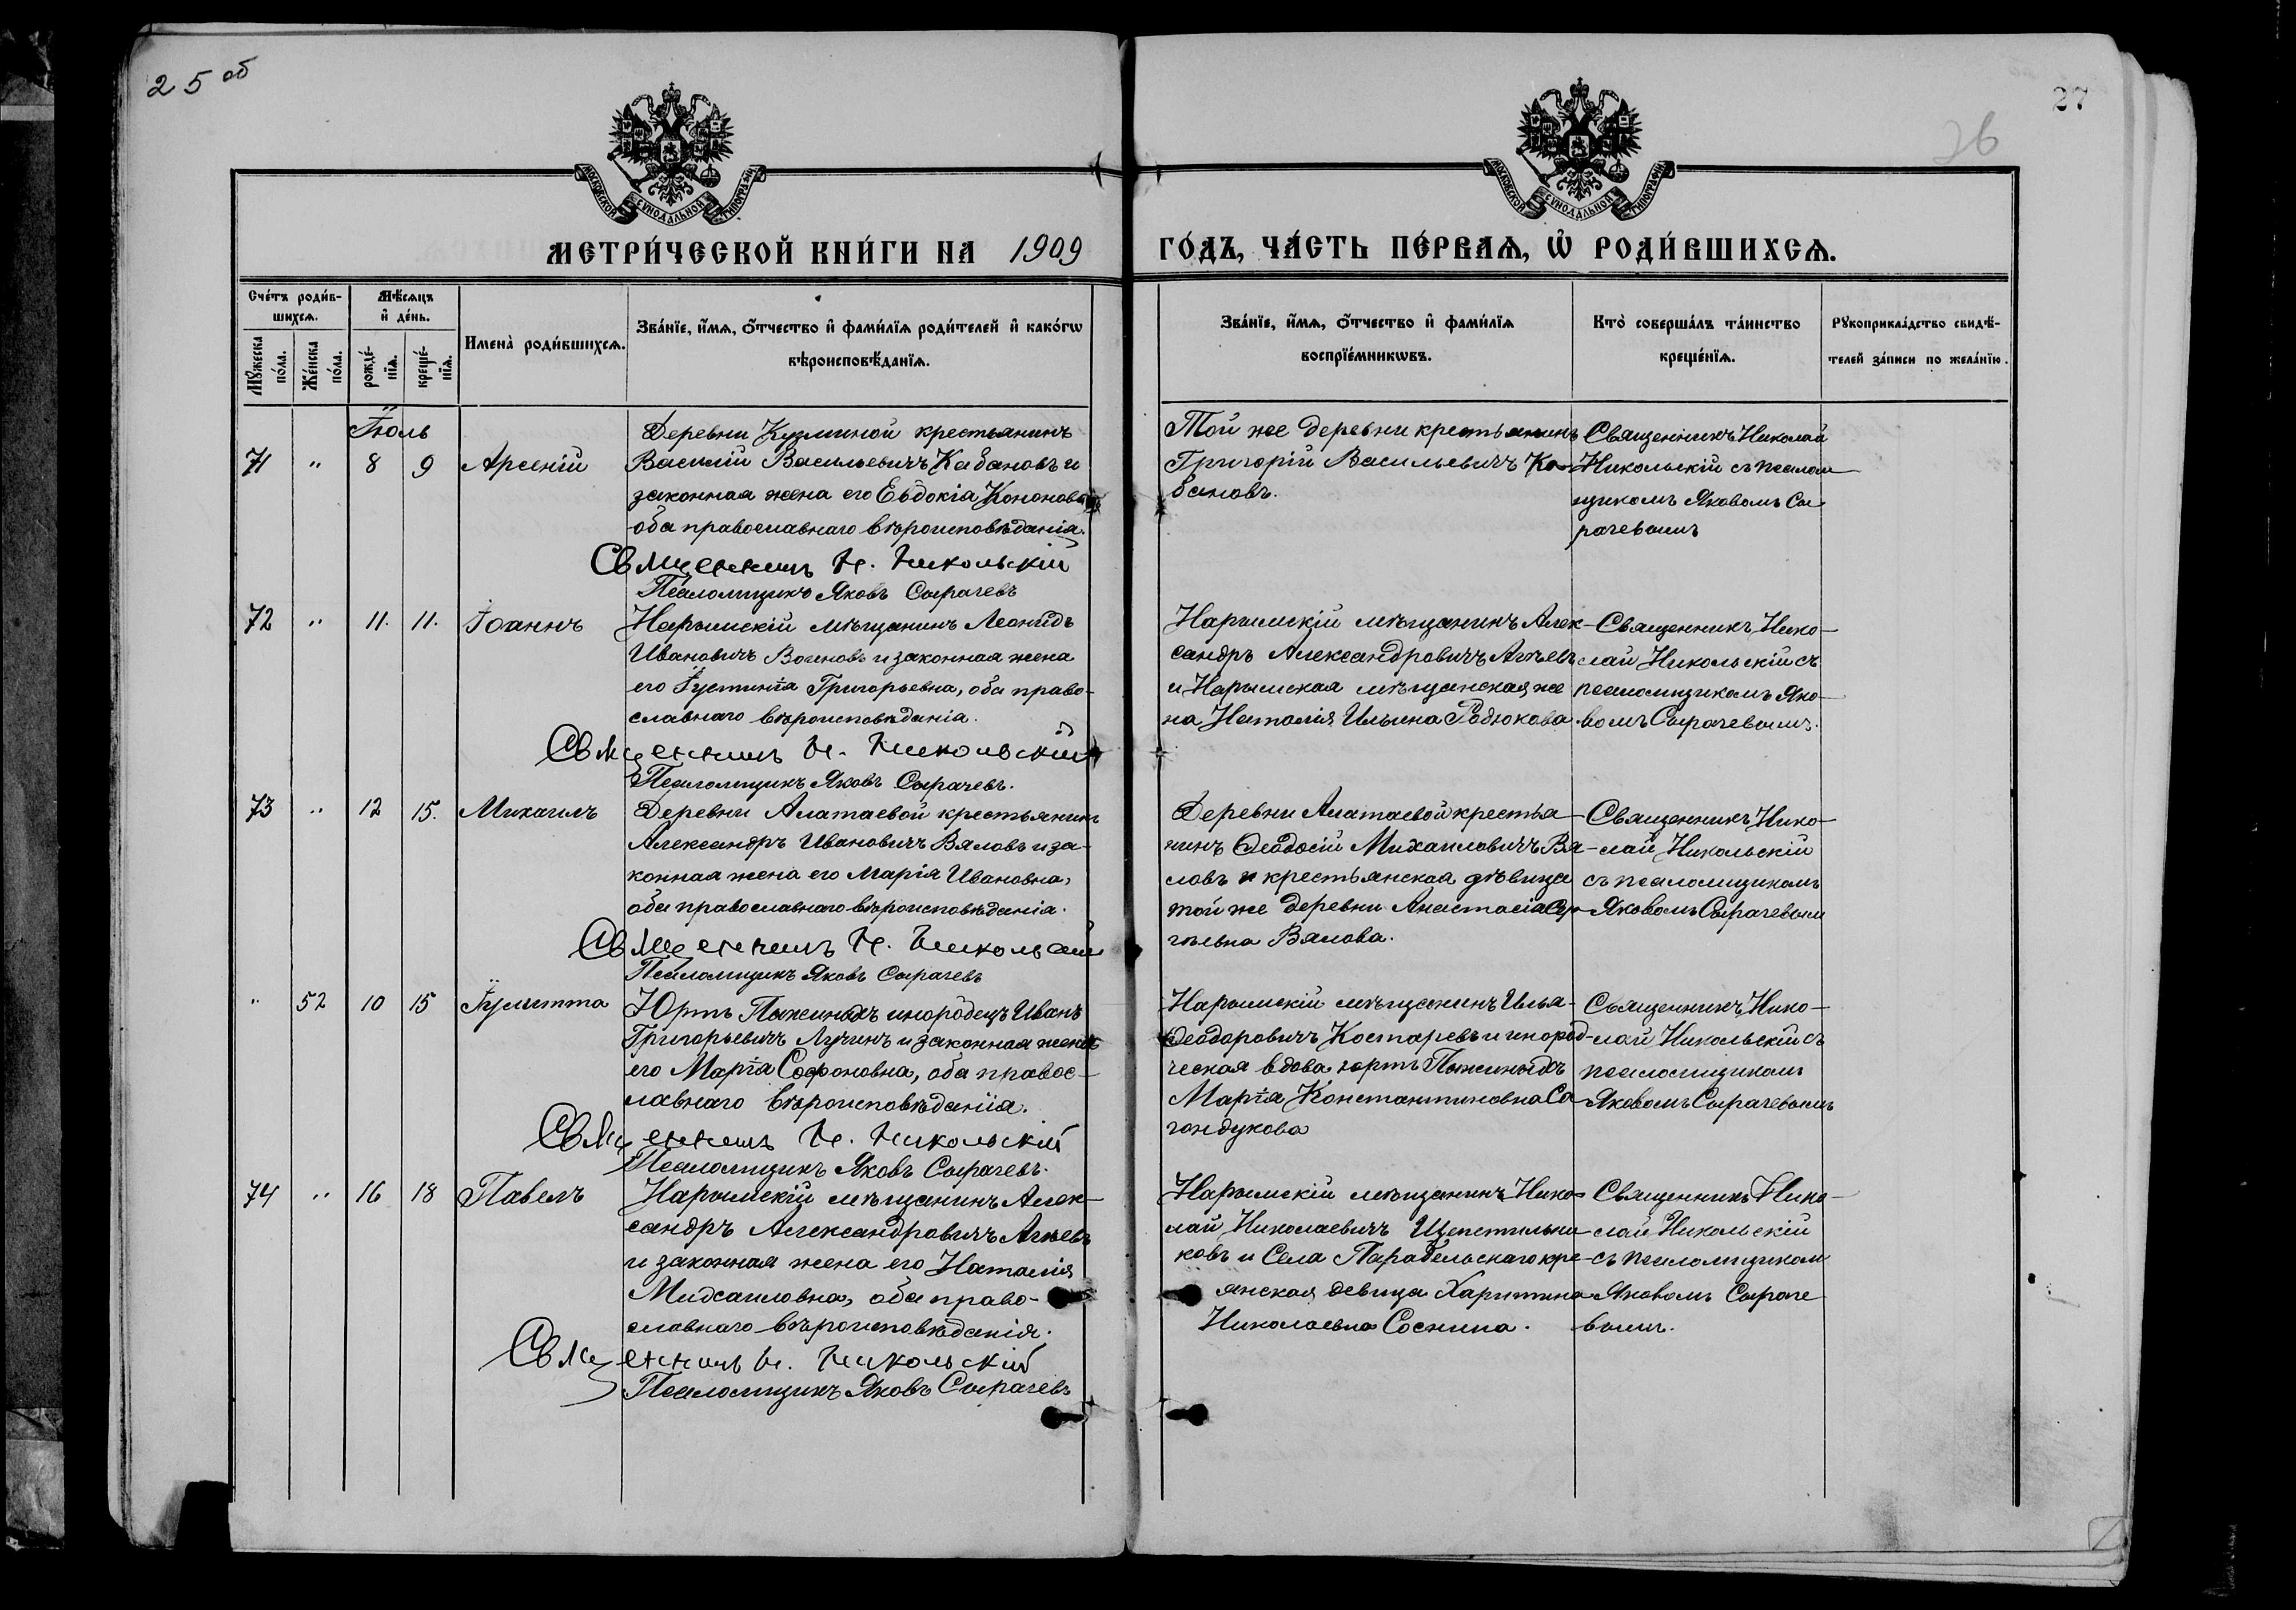 25 об
27
26
МОСКОВСКОЙ СѴНОДАЛЬНОЙ ТИПОГРАФІИ
МОСКОВСКОЙ СѴНОДАЛЬНОЙ ТИПОГРАФІИ
МЕТРИ́ЧЕСКОЙ КНИ́ГИ НА 1909 ГО́ДЪ, ЧА́СТЬ ПЕ́РВАѦ, Ѡ҆ РОДИ́ВШИХСѦ.
Сче́тъ роди́в-
шихсѧ.
Мѣ́сѧцъ
и҆ де́нь.
Мꙋ́жеска
по́ла.
Же́нска
по́ла.
рожде́-
нїѧ.
креще́-
нїѧ.
Имена̀ роди́вшихсѧ.
Зва́нїе, и҆́мѧ, ѻ҆́тчество и҆ фами́лїѧ роди́телей и҆ како́гѡ
вѣроисповѣ́данїѧ.
Зва́нїе, и҆́мѧ, ѻ҆́тчество и҆ фами́лїѧ
воспрїе́мникѡвъ.
Кто̀ соверша́лъ та́инство
креще́нїѧ.
Рꙋкоприкла́дство свидѣ́-
телей за́писи по жела́нїю.
Іюль
71 " 8 9 Арсеній
Деревни Кузминой крестьянинъ
Василій Васильевичъ Кабановъ и
законная жена его Евдокія Кононовна
оба православнаго вѣроисповѣданія.
Священникъ Н. Никольскій
Псаломщикъ Яковъ Сырачевъ
Той же деревни крестьянинъ
Григорій Васильевичъ Ка-
бановъ.
Священникъ Николай
Никольскій съ псалом
щикомъ Яковомъ Сы
рачевымъ
72 " 11. 11. Іоаннъ
Нарымскій мѣщанинъ Леонидъ
Ивановичъ Вогиновъ и законная жена
его Іустинія Григорьевна, оба право-
славнаго вѣроисповѣданія.
Священникъ Н. Никольскій
Псаломщикъ Яковъ Сырачевъ.
Нарымскій мѣщанинъ Алек-
сандръ Александровичъ Агѣевъ
и Нарымская мѣщанская же
на Наталія Ильина Родюкова
Священникъ Нико-
лай Никольскій съ
псаломщикомъ Яко-
вомъ Сырачевымъ.
73 " 12 15. Михаилъ
Деревни Алатаевой крестьянинъ
Александръ Ивановичъ Вяловъ и за-
конная жена его Марія Ивановна,
оба православнаго вѣроисповѣданія.
Священникъ Н. Никольскій
Псаломщикъ Яковъ Сырачевъ
Деревни Алатаевой крестья-
нинъ Ѳеодосій Михаиловичъ Вя-
ловъ и крестьянская дѣвица
той же деревни Анастасія Сер-
гѣевна Вялова.
Священникъ Нико-
лай Никольскій
съ псаломщикомъ
Яковомъ Сырачевым
" 52 10 15 Іулитта
Юртъ Пыжиныхъ инородецъ Иванъ
Григорьевичъ Лучинъ и законная жена
его Марія Софоновна, оба правос-
лавнаго вѣроисповѣданія.
Священникъ Н. Никольскій
Псаломщикъ Яковъ Сырачевъ.
Нарымскій мѣщанинъ Илья
Ѳеодоровичъ Костаревъ и инород-
ческая вдова юртъ Пыжиныхъ
Марія Константиновна Са
гондукова
Священникъ Нико-
лай Никольскій съ
псаломщикомъ
Яковомъ Сырачевымъ
74 " 16 18 Павелъ
Нарымскій мѣщанинъ Алек-
сандръ Александровичъ Агѣевъ
и законная жена его Наталія
Михаиловна, оба право-
славнаго вѣроисповѣданія.
Священникъ Н. Никольскій
Псаломщикъ Яковъ Сырачевъ
Нарымскій мѣщанинъ Нико-
лай Николаевичъ Щепетильни
ковъ и Села Парабельскаго кре-
янская девица Харитина
Николаевна Соснина.
Священникъ Нико-
лай Никольскій
съ псаломщиком
Яковомъ Сыраче
вымъ.